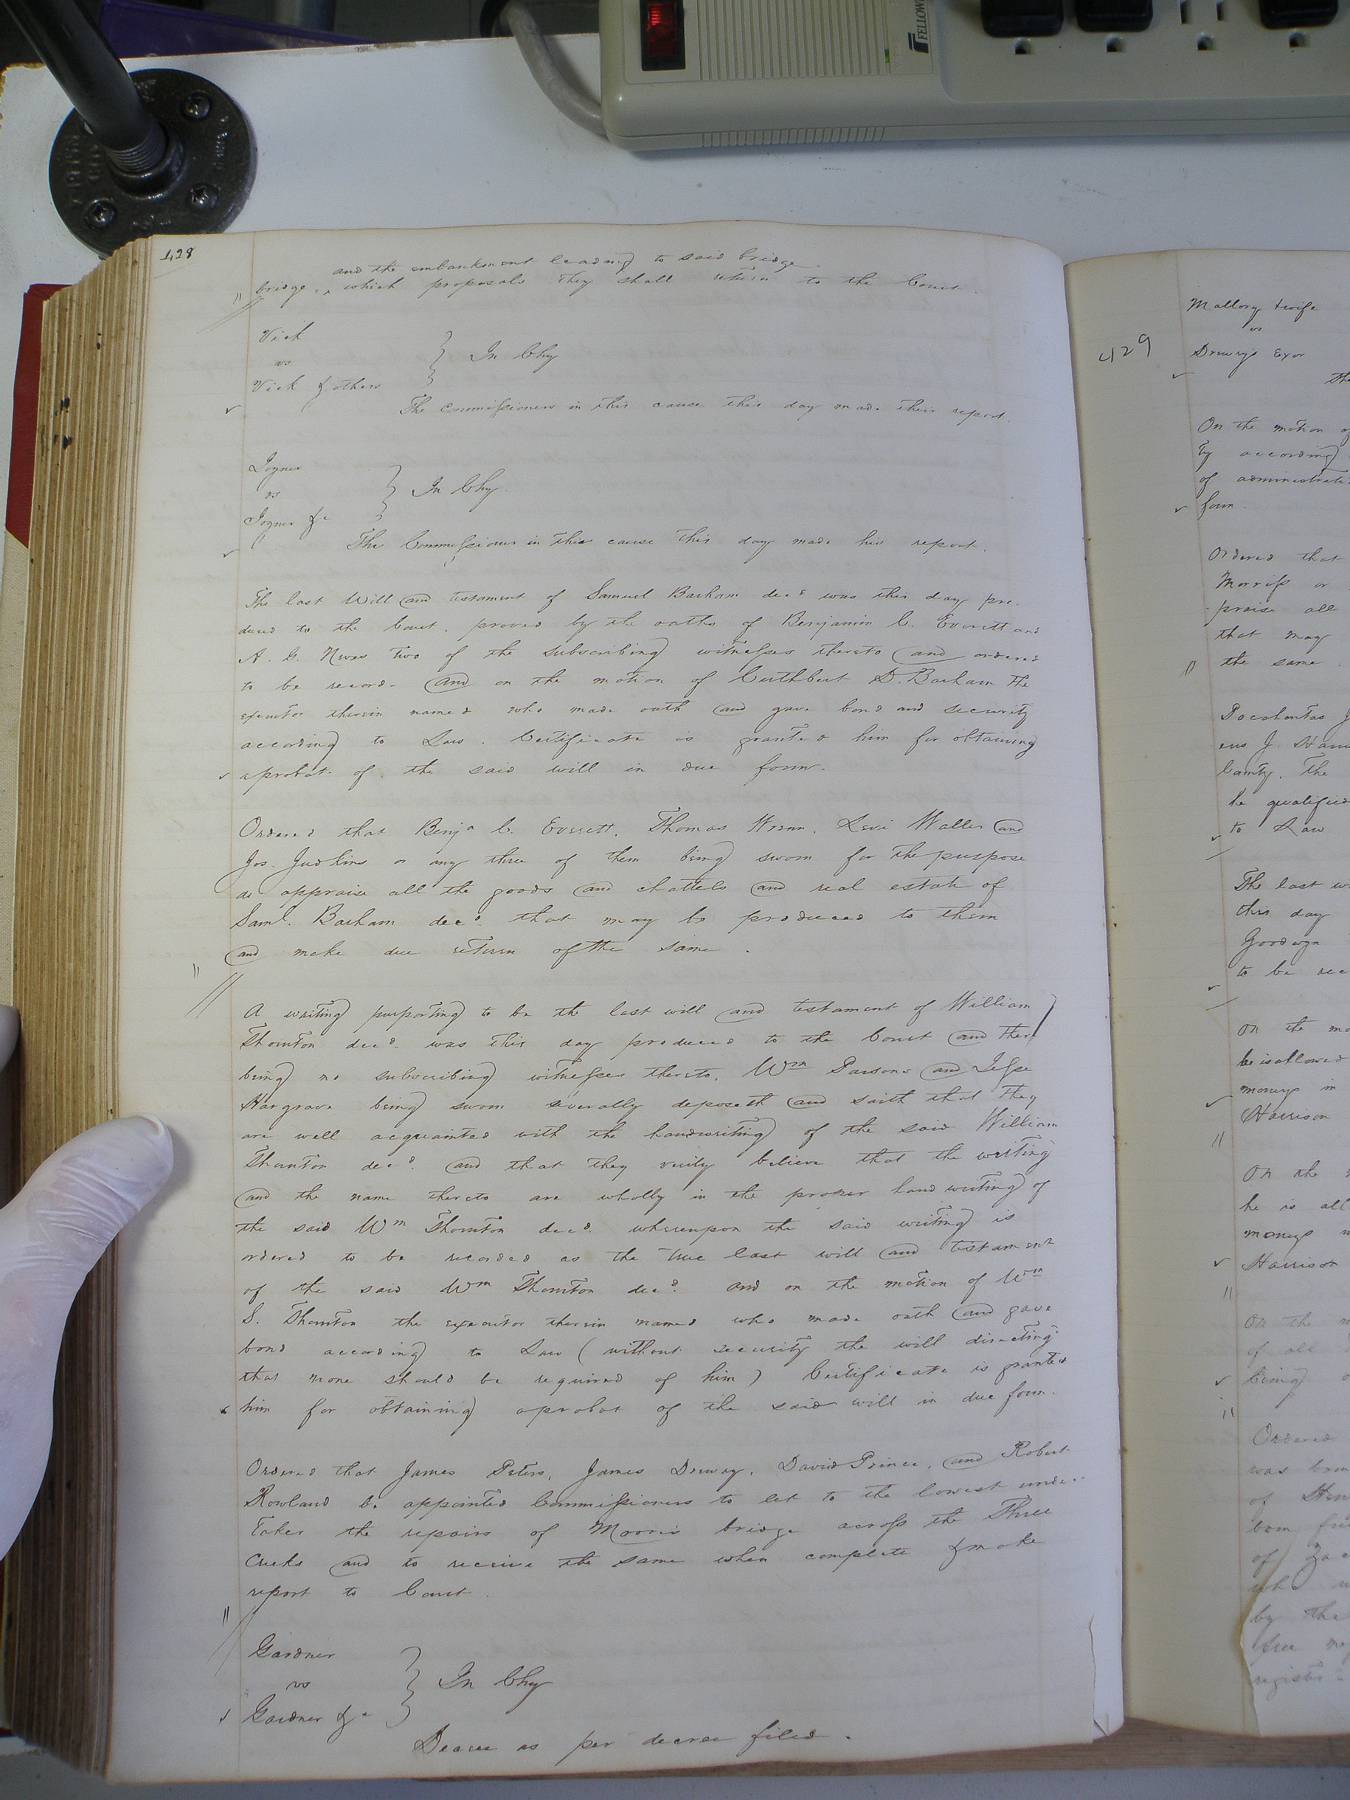 FELLOW
428
and the embankment leading to said bridge
bridge, ^ which proposals they shall return to the Court.
Vick
vs
Vick & others
In Chy
The Commissioners in this cause this day made their report.
Joyner
vs
Joyner &c
In Chy
The Commissioner in this cause this day made his report.
The last Will and testament of Samuel Barham decd was this day pro-
duced to the Court, proved by the oaths of Benjamin C. Everett and
A. C. two of the subscribing witnesses thereto and ordered
to be record- and on the motion of Cuthbert D. Barham the
executor therein named who made oath and gave bond and security
according to Law. Certificate is granted him for obtaining
a probat of the said will in due form.
Ordered that Benja C. Everett, Thomas Wrenn, Levi Waller and
Jos. Judkins or any three of them being sworn for the purpose
do appraise all the goods and chattels and real estate of
Saml. Barham decd. that may be produced to them
and make due return of the same.
A writing purporting to be the last will and testament of William
Thornton decd. was this day produced to the Court and there
being no subscribing witnesses thereto, Wm Parsons and Jesse
Hargrave being sworn severally deposeth and saith that they
are well acquainted with the handwriting of the said William
Thornton decd. and that they verily believe that the writing
and the name thereto are wholly in the proper hand writing of
the said Wm Thornton decd. whereupon the said writing is
ordered to be recorded as the true last will and testament
of the said Wm Thornton decd. and on the motion of Wm
S. Thornton the executor therein named who made oath and gave
bond according to Law (without security the will directing
that none should be required of him) Certificate is granted
him for obtaining a probat of the said will in due form.
Ordered that James Peters, James Drewry, David Prince, and Robert
Rowland be appointed Commissioners to let to the lowest under-
taker the repairs of Moore's bridge across the Three
Creeks and to receive the same when complete & make
report to Court.
Gardner
vs
Gardner &c
In Chy
Decree as per decree filed.
429
Mallory & wife
vs
Drewry's Exor
the
On the motion of
ty according
of administrati
form.
Ordered that
Morriss or
praise all
that may
the same.
Pocahontas J
ens J. Harr
County. The
he qualified
to Law
The last w
this day
Goodwyn
to be rec
On the mo
he is allowed
moneys in
Harrison
On the
he is all
moneys
Harrison
On the m
of all
being
Ordered
was born
of Hen
born free
of Zac
by the
free
registe